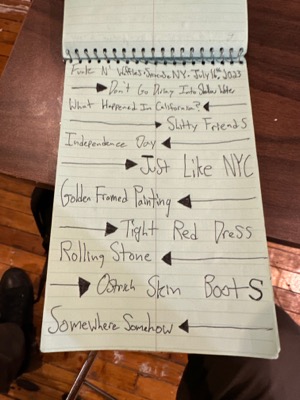 Funk N' Waffles Syracuse, NY. July 16th 2023
Don't Go Diving Into Shallow Water
What Happened In California?
Shitty Friends
Independence Day
Just Like NYC
Golden Framed Painting
Tight Red Dress
Rolling Stone
Ostrich Skin Boots
Somewhere Somehow